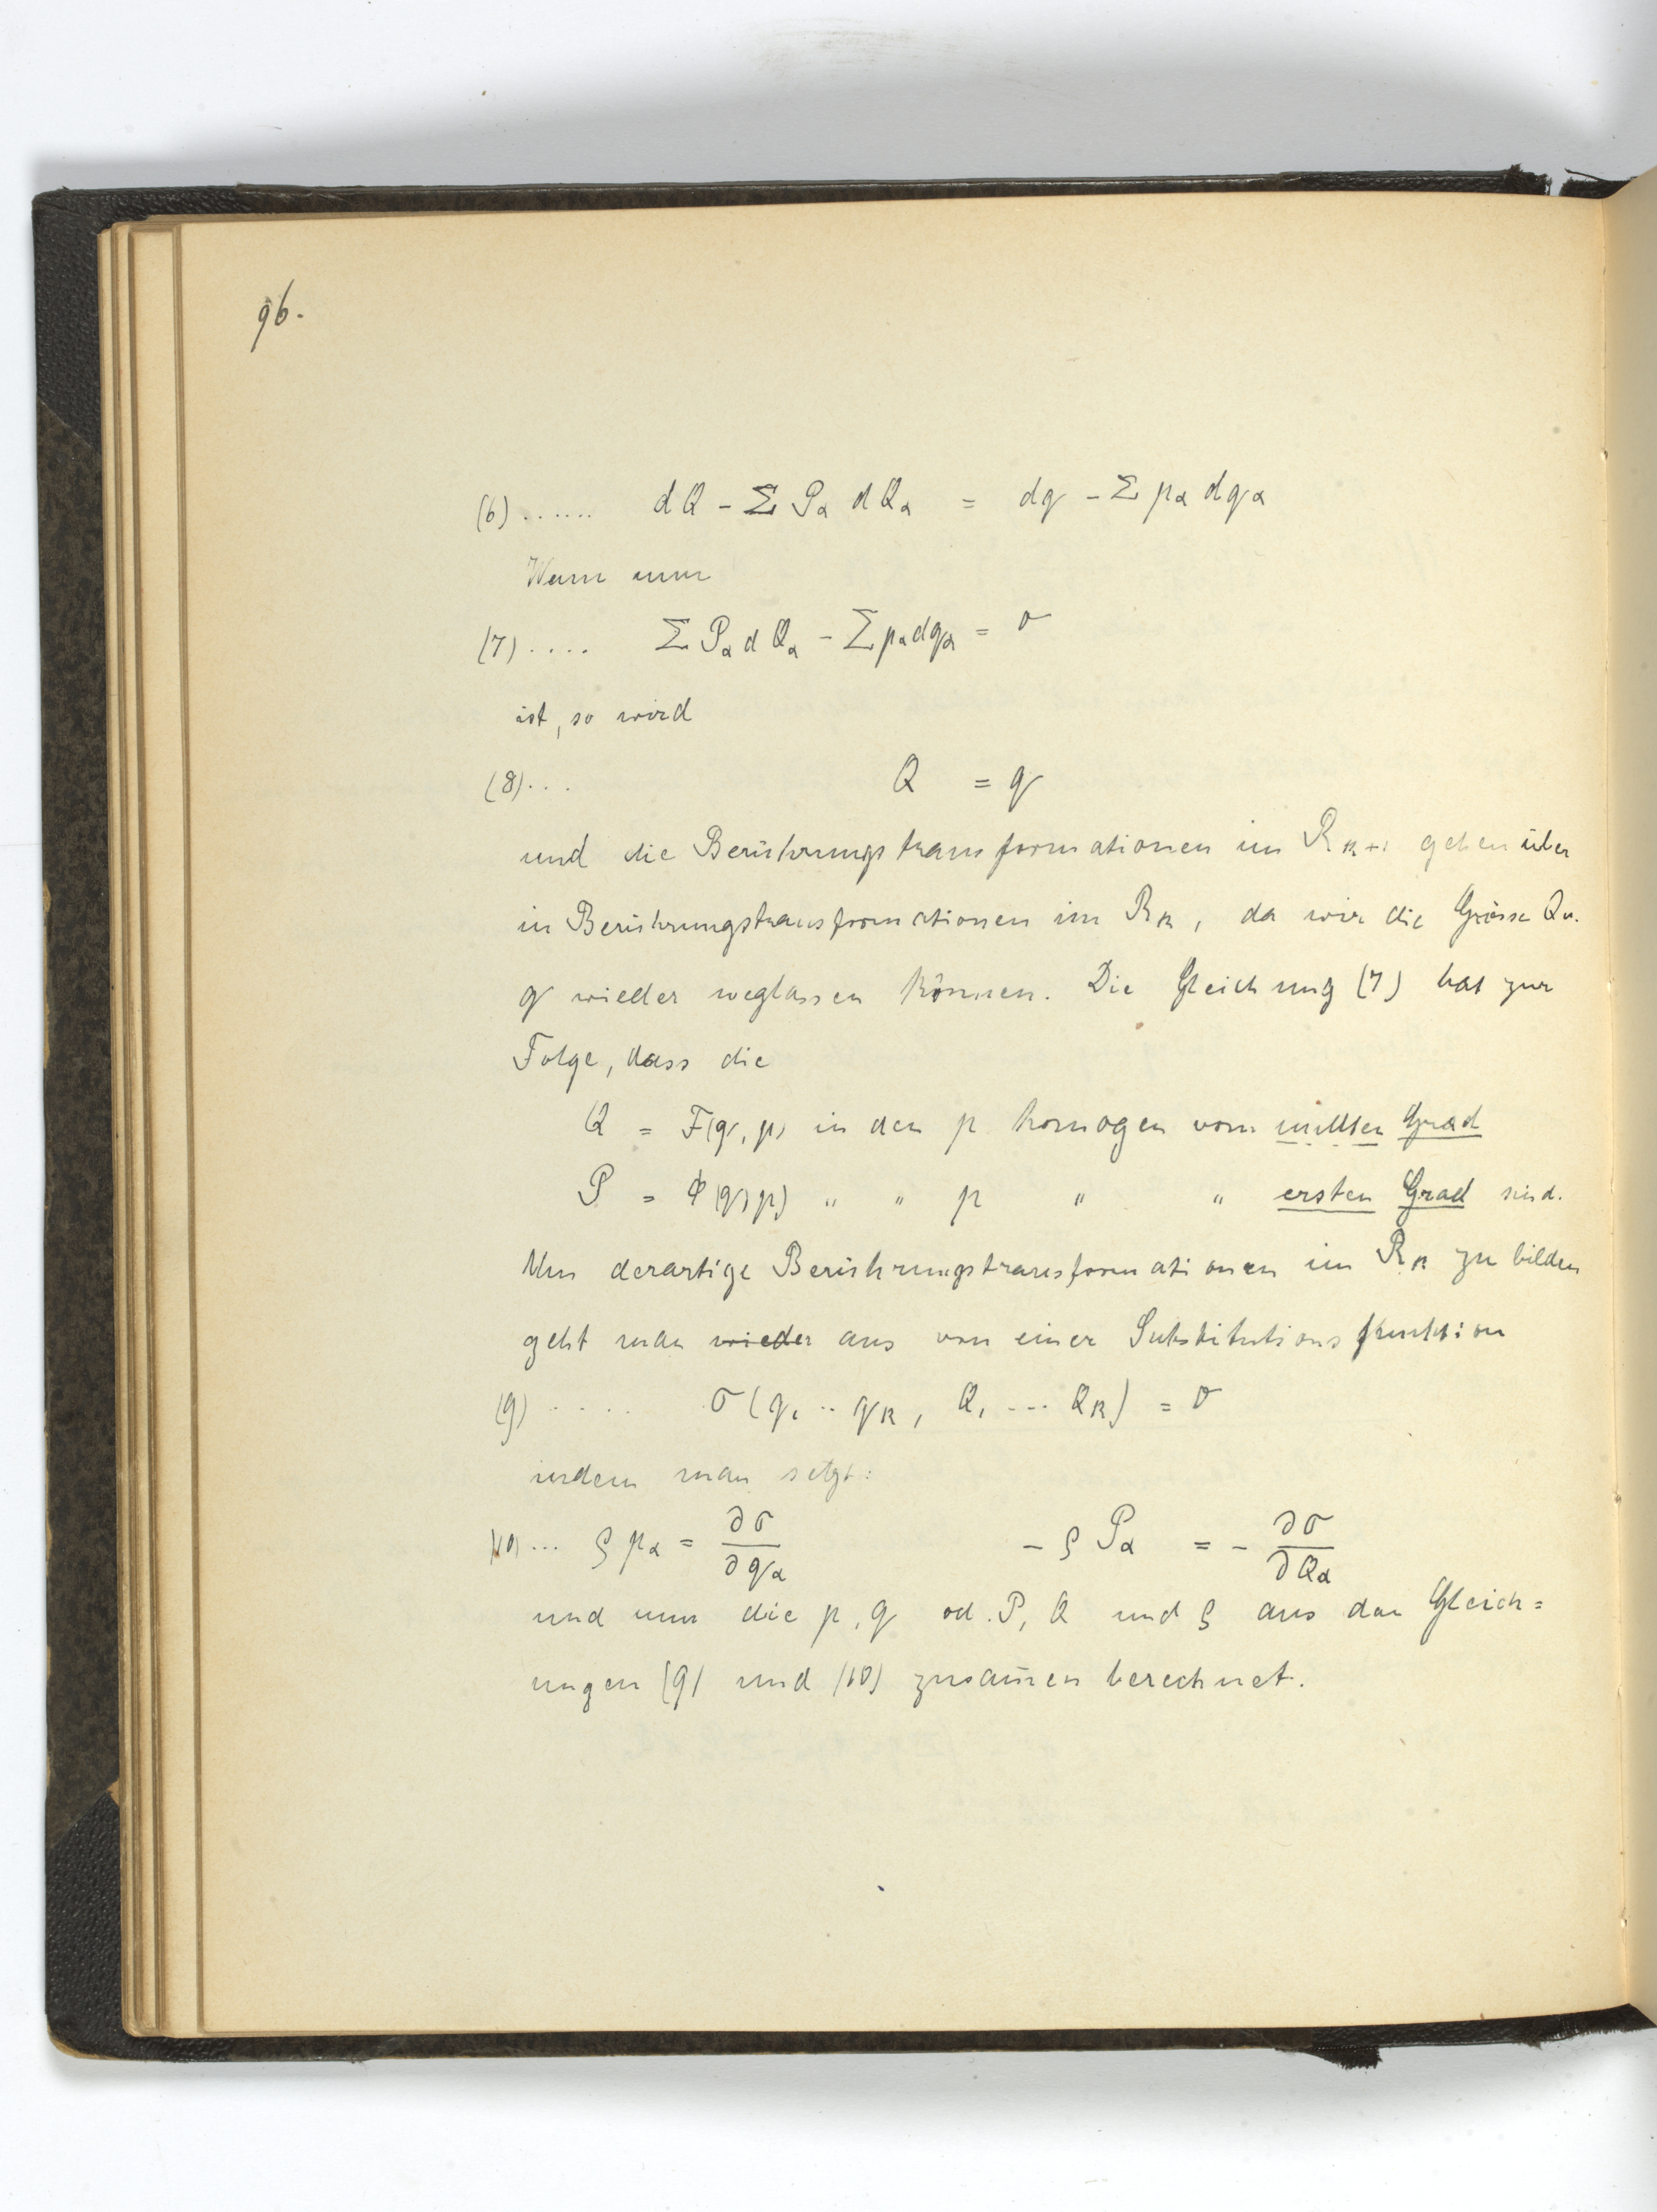 96.
(6) ...... dQ - Σ Pα dQα = dq - Σ pα dqα
Wenn nun
(7) .... Σ Pα d Qα - Σ pα dqα = 0
ist, so wird
(8) ... Q = q
und die Berührungstransformationen im Rk+1 gehen über
in Berührungstransformationen im Rk, da wir die Grösse Q u.
q wieder weglassen können. Die Gleichung (7) hat zur
Folge, dass die
Q = F(q, p) in den p homogen vom nullten Grad
P = Φ(q, p) " " p " " ersten Grad sind.
Um derartige Berührungstransformationen im Rk zu bilden
geht man wieder aus von einer Substitutionsfunktion
(9) ..... σ(q1 .. qk, Q1 ... Qk) = 0
indem man setzt:
(10) ... ρ pα = ∂σ/∂qα - ρ Pα = - ∂σ/∂Qα
und nun die p, q od. P, Q und ρ aus den Gleich=
ungen (9) und (10) zusam̄en berechnet.